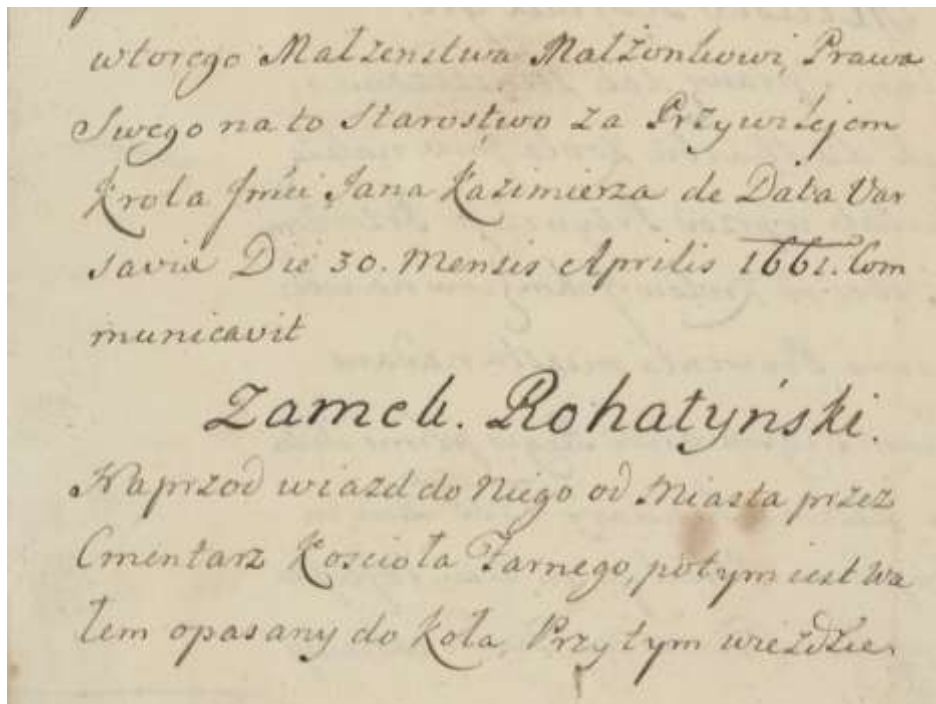 wtorego Małżenstwa Małżonkowi Prawa
Swego na to Starostwo za Przywilejem
Krola Jmći Jana Kazimierza de Data Var
savie Die 30. Mensis Aprilis 1661. Com
municavit
Zamek. Rohatyński.
Naprzod wiazd do Niego od Miasta przez
Cmentarz Koscioła Farnego, potym iest Wa
łem opasany do koła Przytym wieżdzie